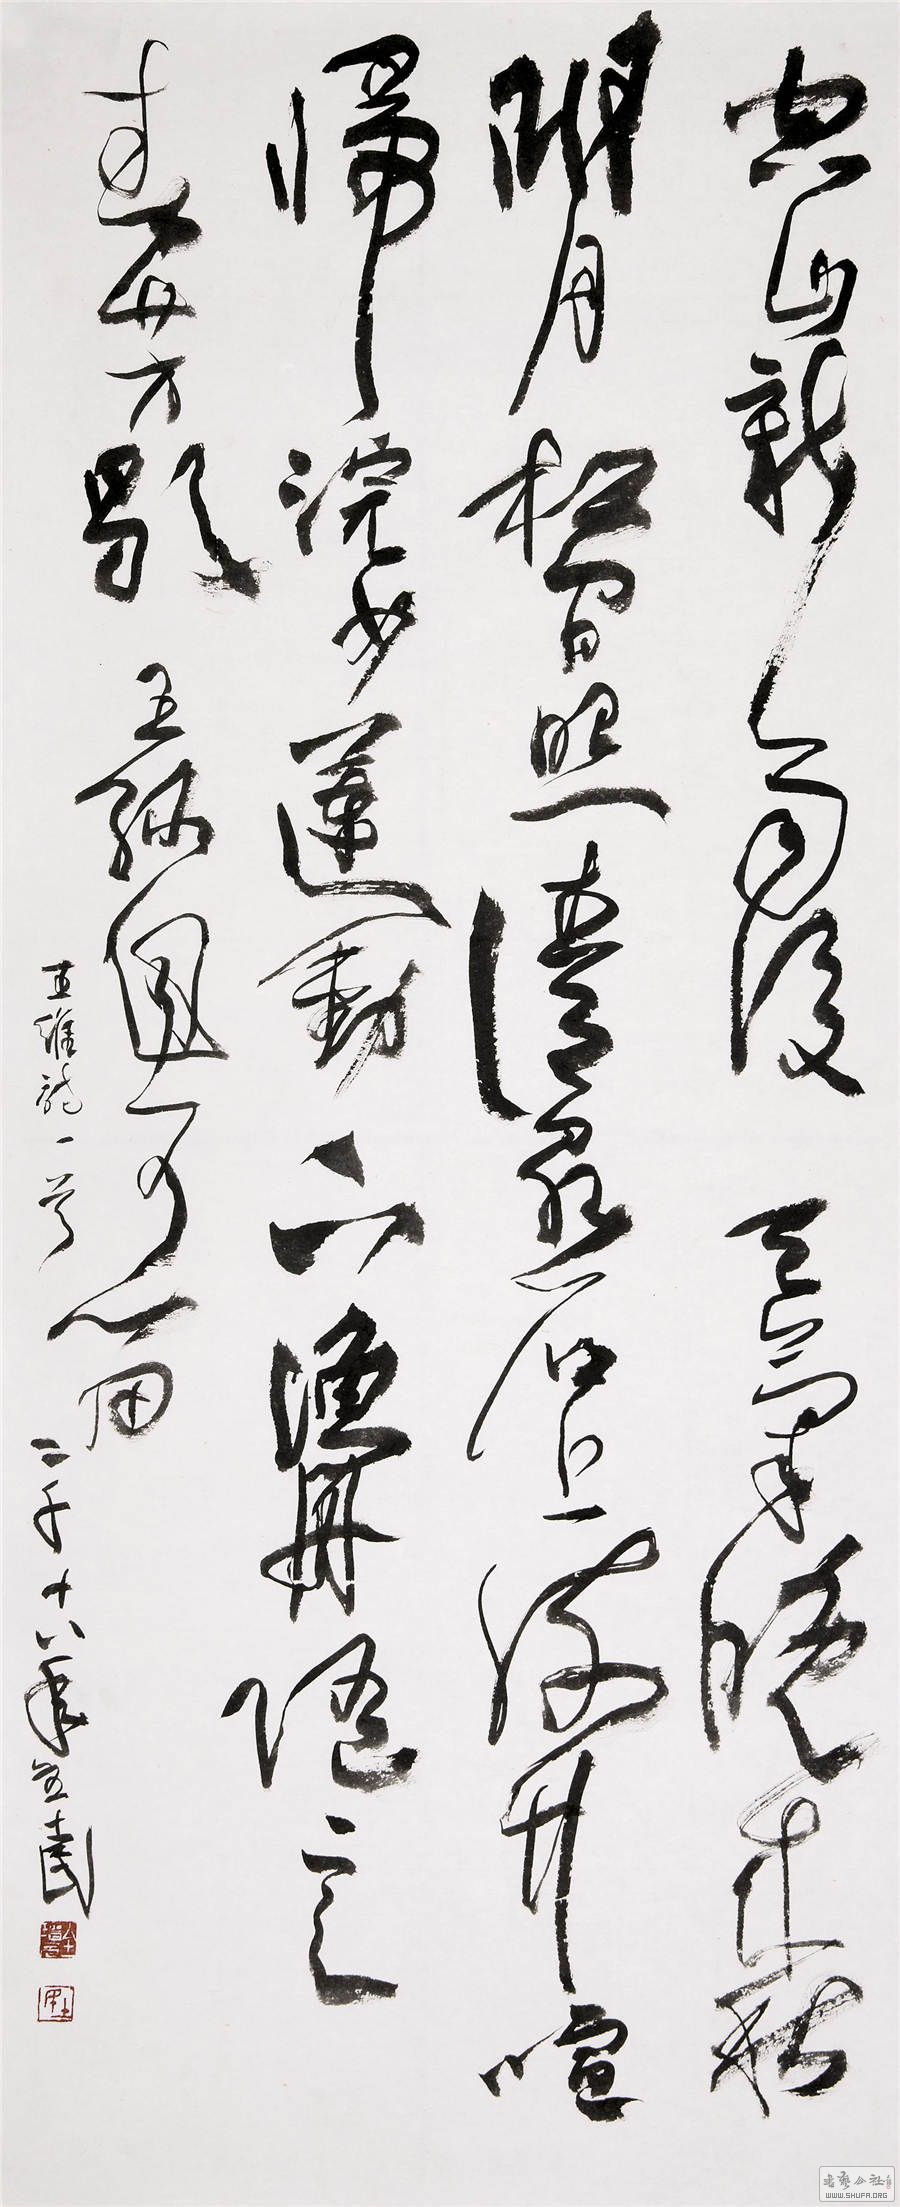 空山新雨後天氣晚來秋
明月松間照清泉石上流竹喧
歸浣女蓮動下漁舟隨意
春芳歇王孫自可留
王維詩一首二千十八年
书艺公社
WWW.SHUFA.ORG